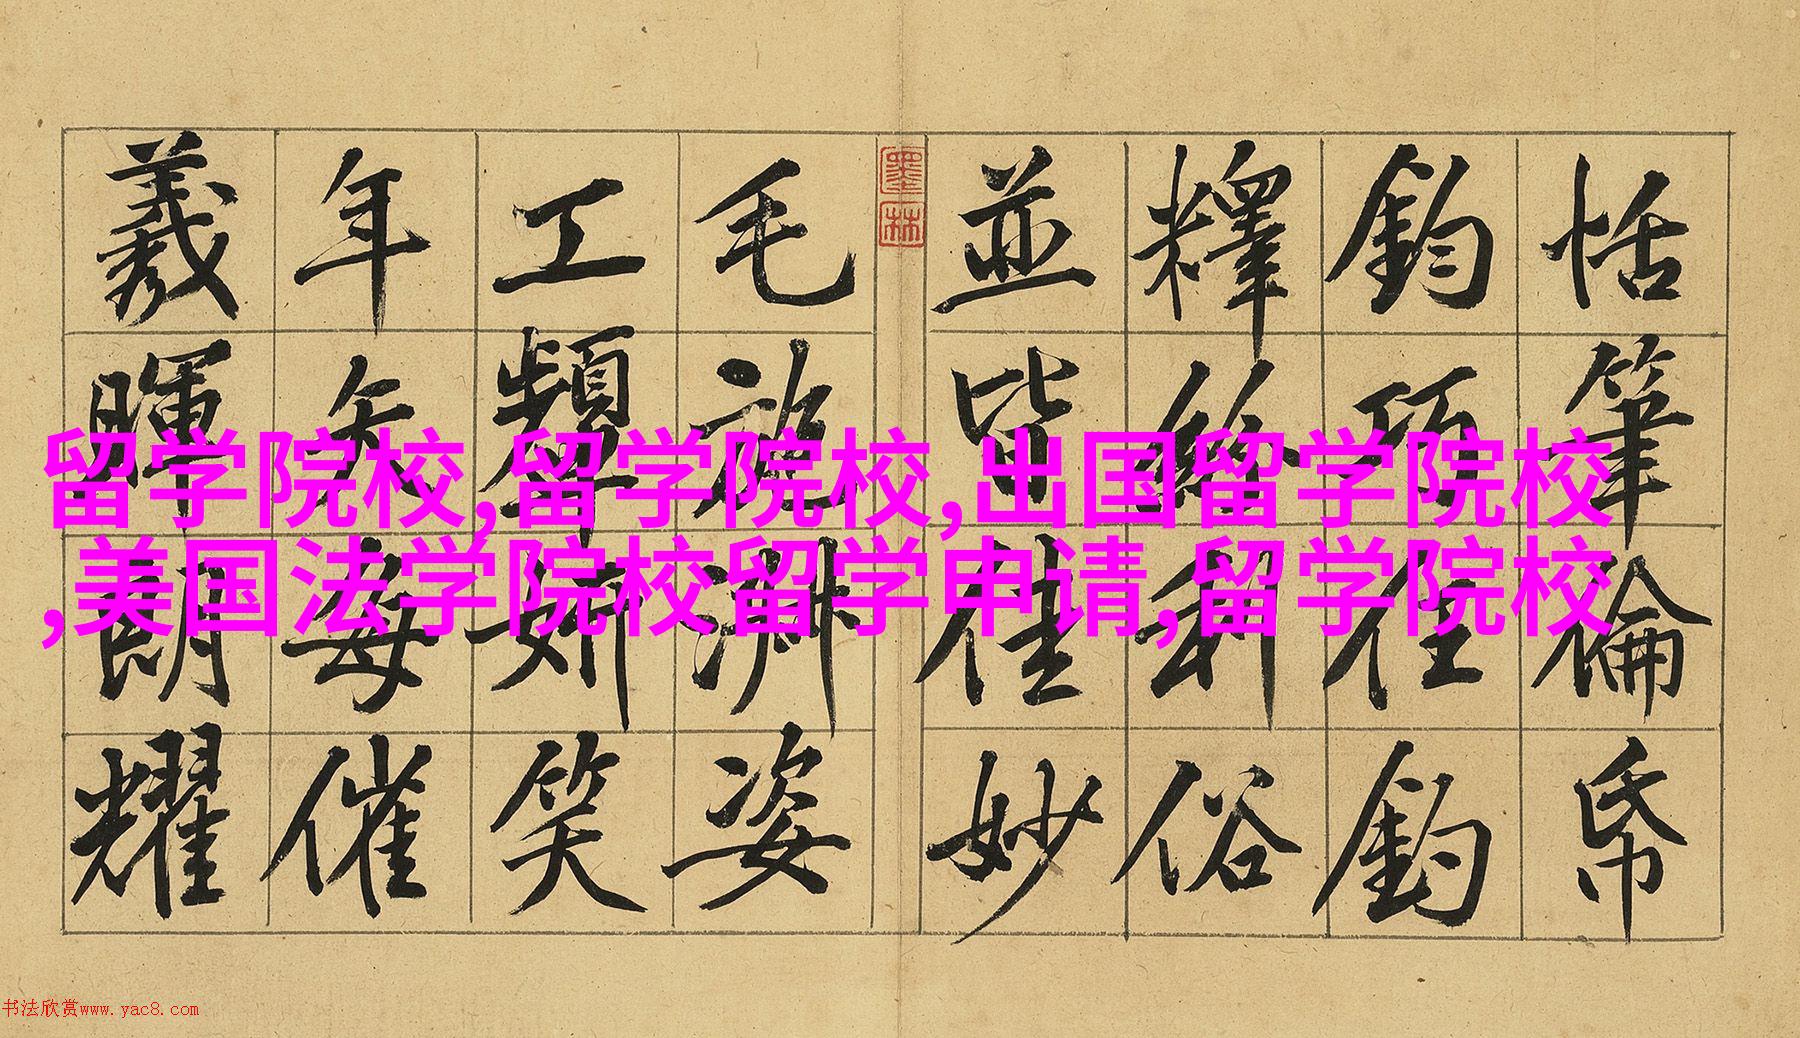 恬筆倫帋
鈞巧任釣
釋紛利俗
並皆佳妙
墨林
毛施淑姿
工顰妍笑
年矢每催
羲暉朗耀
留学院校,留学院校,出国留学院校
,美国法学院校留学申请,留学院校
书法欣赏www.yac8.com